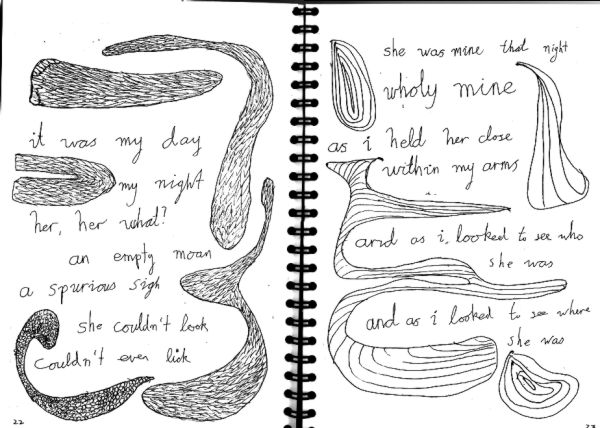 it was my day
my night
her, her what?
an empty moan
a spurious sigh
she couldn't look
couldn't even lick
22
she was mine that night
wholy mine
as i held her close
within my arms
and as i, looked to see who
she was
and as i looked to see where
she was
23